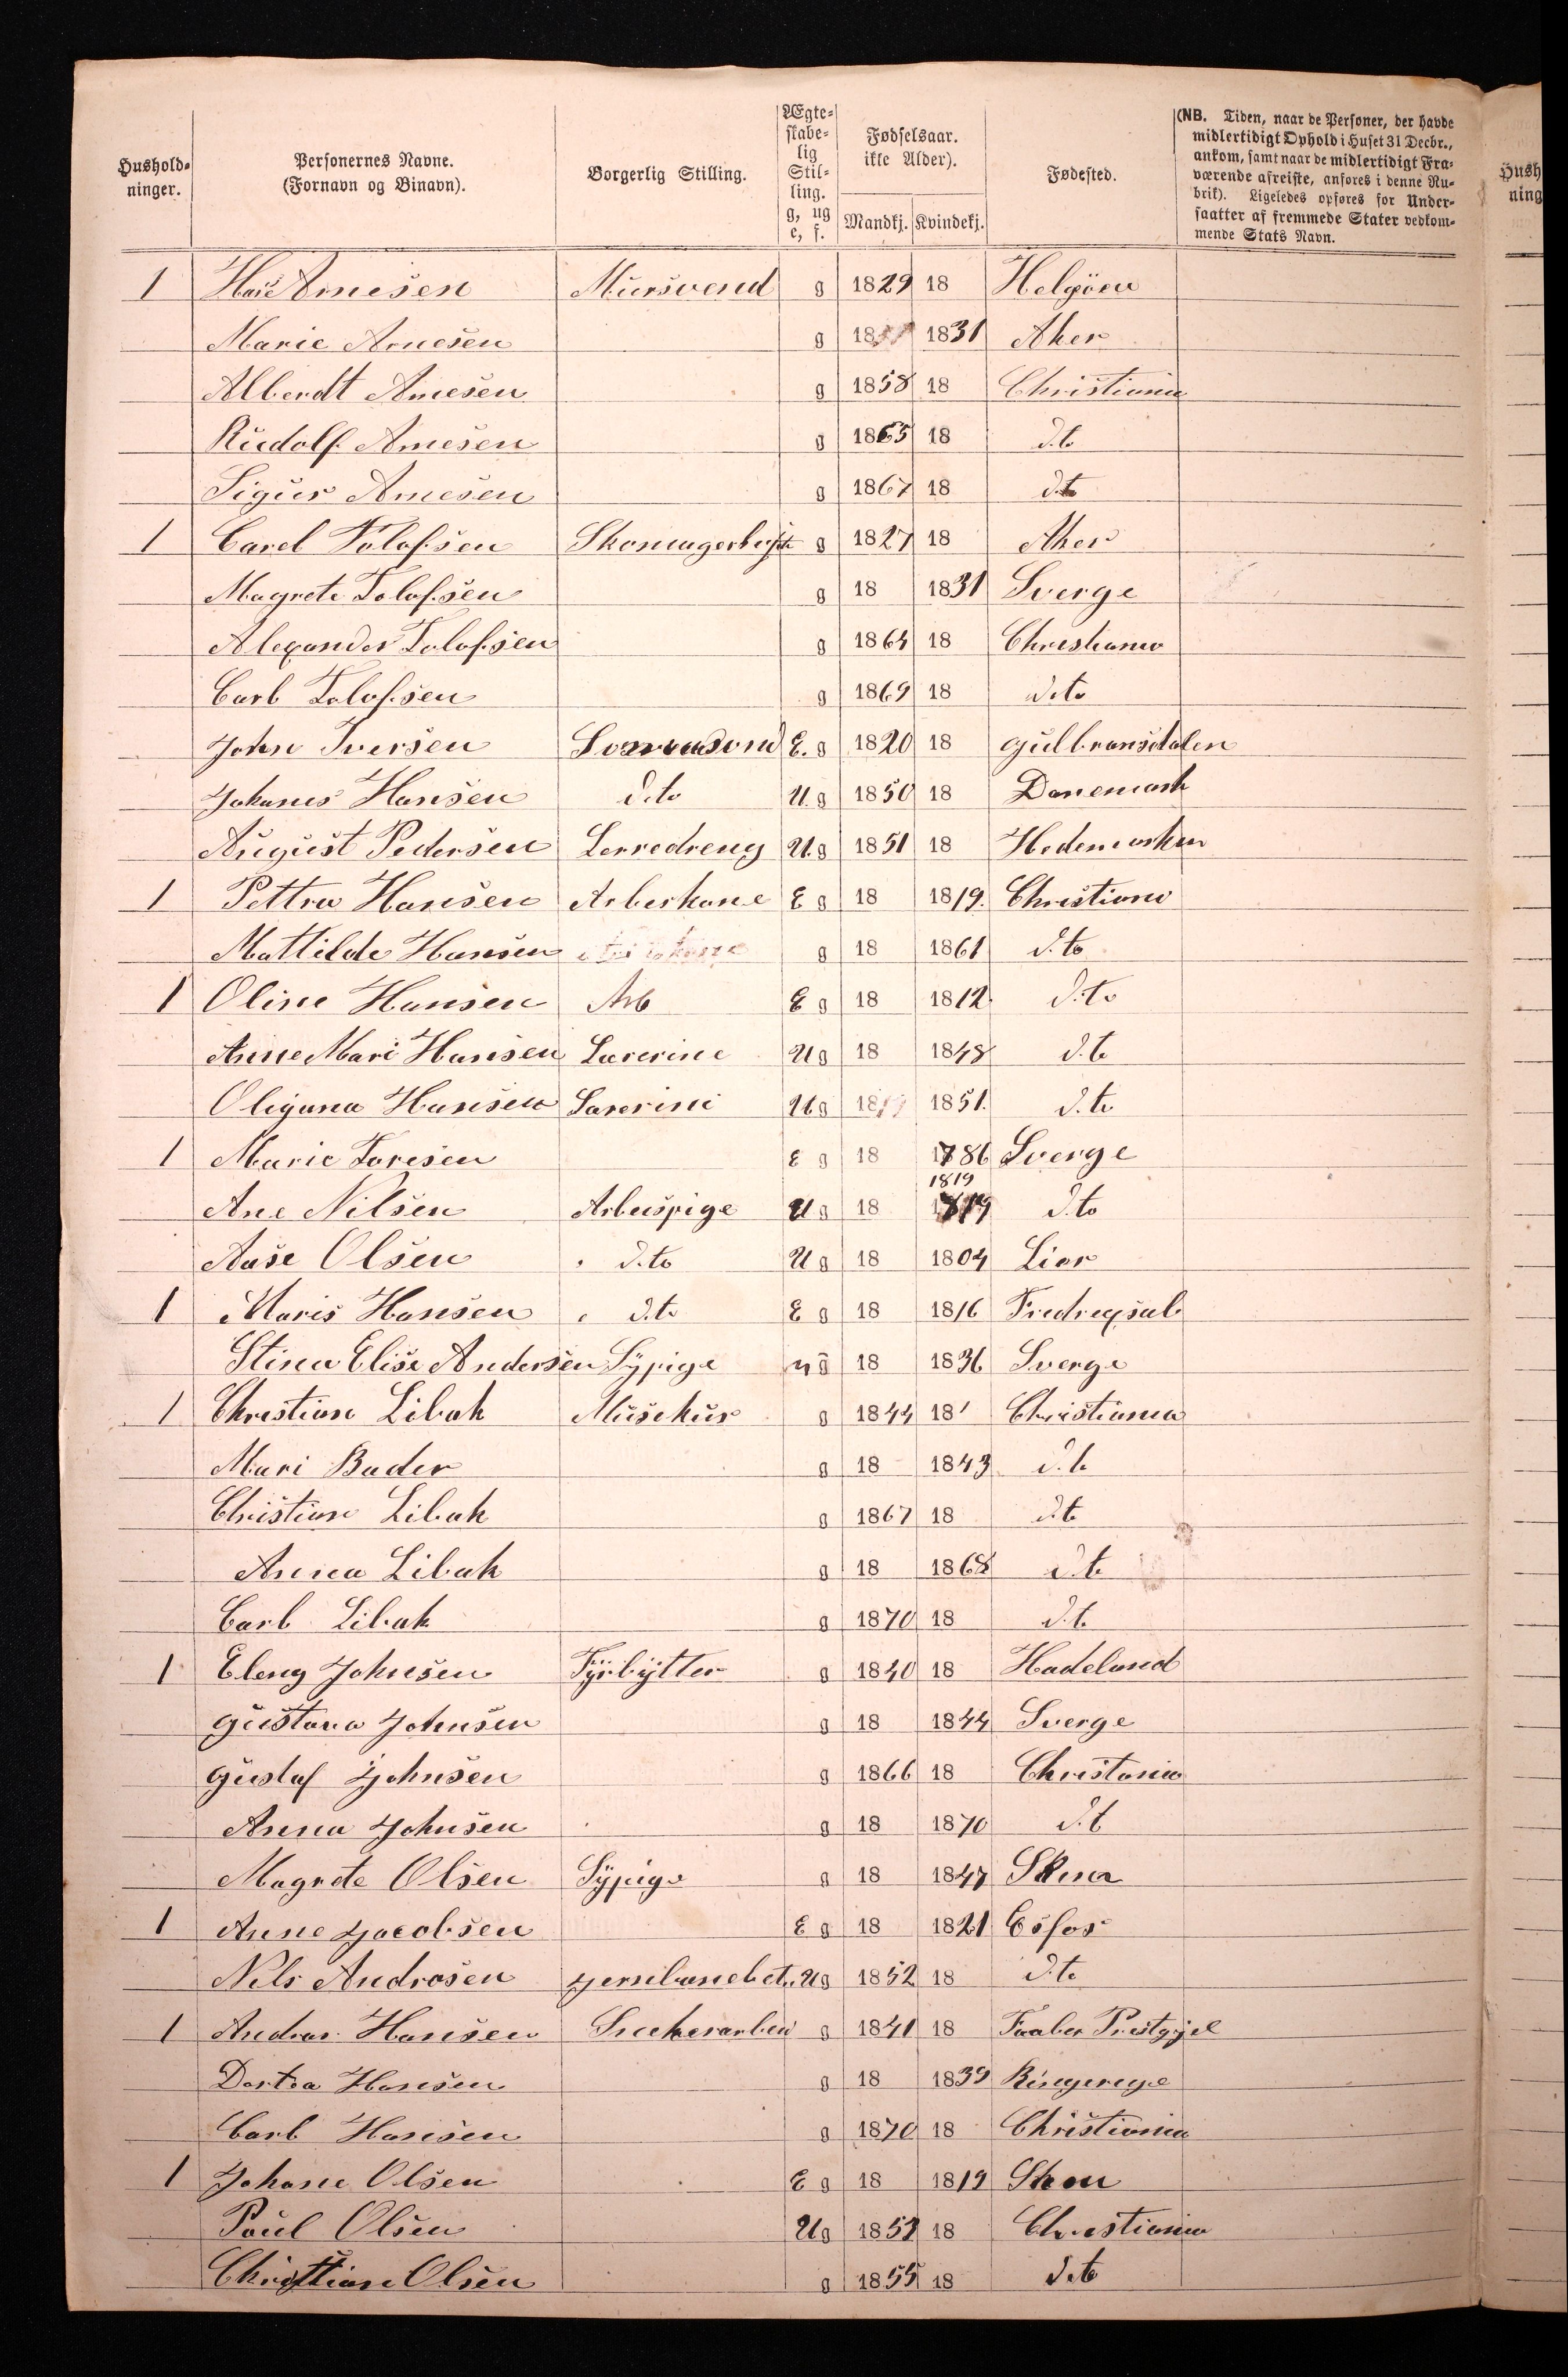 Hushold-
ninger.
Personernes Navne.
(Fornavn og Binavn).
Borgerlig Stilling.
Ægte-
skabe-
lig
Stil-
ling.
g, ug
e, f.
Fødselsaar.
ikke Alder).
Mandkj. Kvindekj.
Fødested.
(NB. Tiden, naar de Personer, der havde
midlertidigt Ophold i Huset 31 Decbr.,
ankom, samt naar de midlertidigt Fra-
værende afreiste, anføres i denne Ru-
brik). Ligeledes opføres for Under-
saatter af fremmede Stater vedkom-
mende Stats Navn.
Hush
ning
1 Hans Arnesen Mursvend g 1829 18 Helgöen
Marie Arnesen g 18 1831 Aker
Alberdt Arnesen g 1858 18 Christiania
Rudolf Arnesen g 1865 18 d.to
Sigur Arnesen g 1867 18 d.to
1 Carel Tolofsen g 1827 18 Aker
Magrete Tolofsen g 18 1831 Sverge
Alexander Tolofsen g 1864 18 Christiania
Carl Tolofsen g 1869 18 d.to
John Iversen E. g 1820 18 gulbransdalen
Johanes Hansen d.to U. g 1850 18 Danemark
August Pedersen Lerredreng U. g 1851 18 Hedemarken
1 Pettra Hansen Arbeskone E g 18 1819. Christiania
Mattilde Hansen g 18 1861 d.to
1 Oline Hansen Arb E g 18 1812 d.to
Anne Mari Hansen Lærerine U g 18 1848 d.to
Oligana Hansen Lærerine U g 18 1851. d.to
1 Marie Toresen E g 18 1786 Sverge
1819
Ane Nilsen Arbespige U g 18 d.to
Aase Olsen d.to U g 18 1804 Lier
1 Maris Hansen d.to E g 18 1816 Fredregsal
Stina Elise Andersen Sypige u g 18 1836 Sverge
1 Christian Libak Musekus g 1844 18 Christiania
Mari Bader g 18 1843 d.to
Christian Libak g 1867 18 d.to
Anna Libak g 18 1868 d.to
Carl Libak g 1870 18 d.to
1 Eleng Johnsen Fyrbytter g 1840 18 Hadeland
gustava Johnsen g 18 1844 Sverge
gustaf Johnsen g 1866 18 Christania
Anna Johnsen g 18 1870 d.t
Magrete Olsen Sypige g 18 1847
1 Anne Jacobsen E g 18 1821 Esfos
Nels Androsen U g 1852 18 d.to
1 Andreas Hansen Snekerarbei g 1841 18 Faaber Prestgjel
Dortea Hansen g 18 1839 Ringerege
Carl Hansen g 1870 18 Christiania
1 Johane Olsen E g 18 1819
Poul Olsen U g 1853 18 Christiania
Christian Olsen g 1855 18 d.to